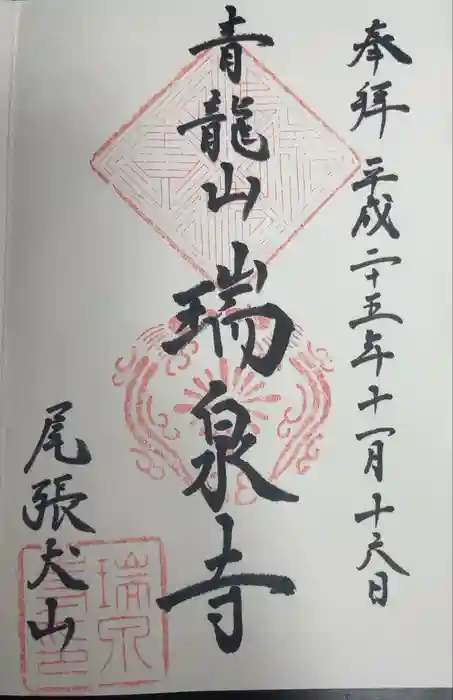 奉拜 平成二十五年十一月十六日
青龍山 瑞泉寺
尾張犬山
瑞泉